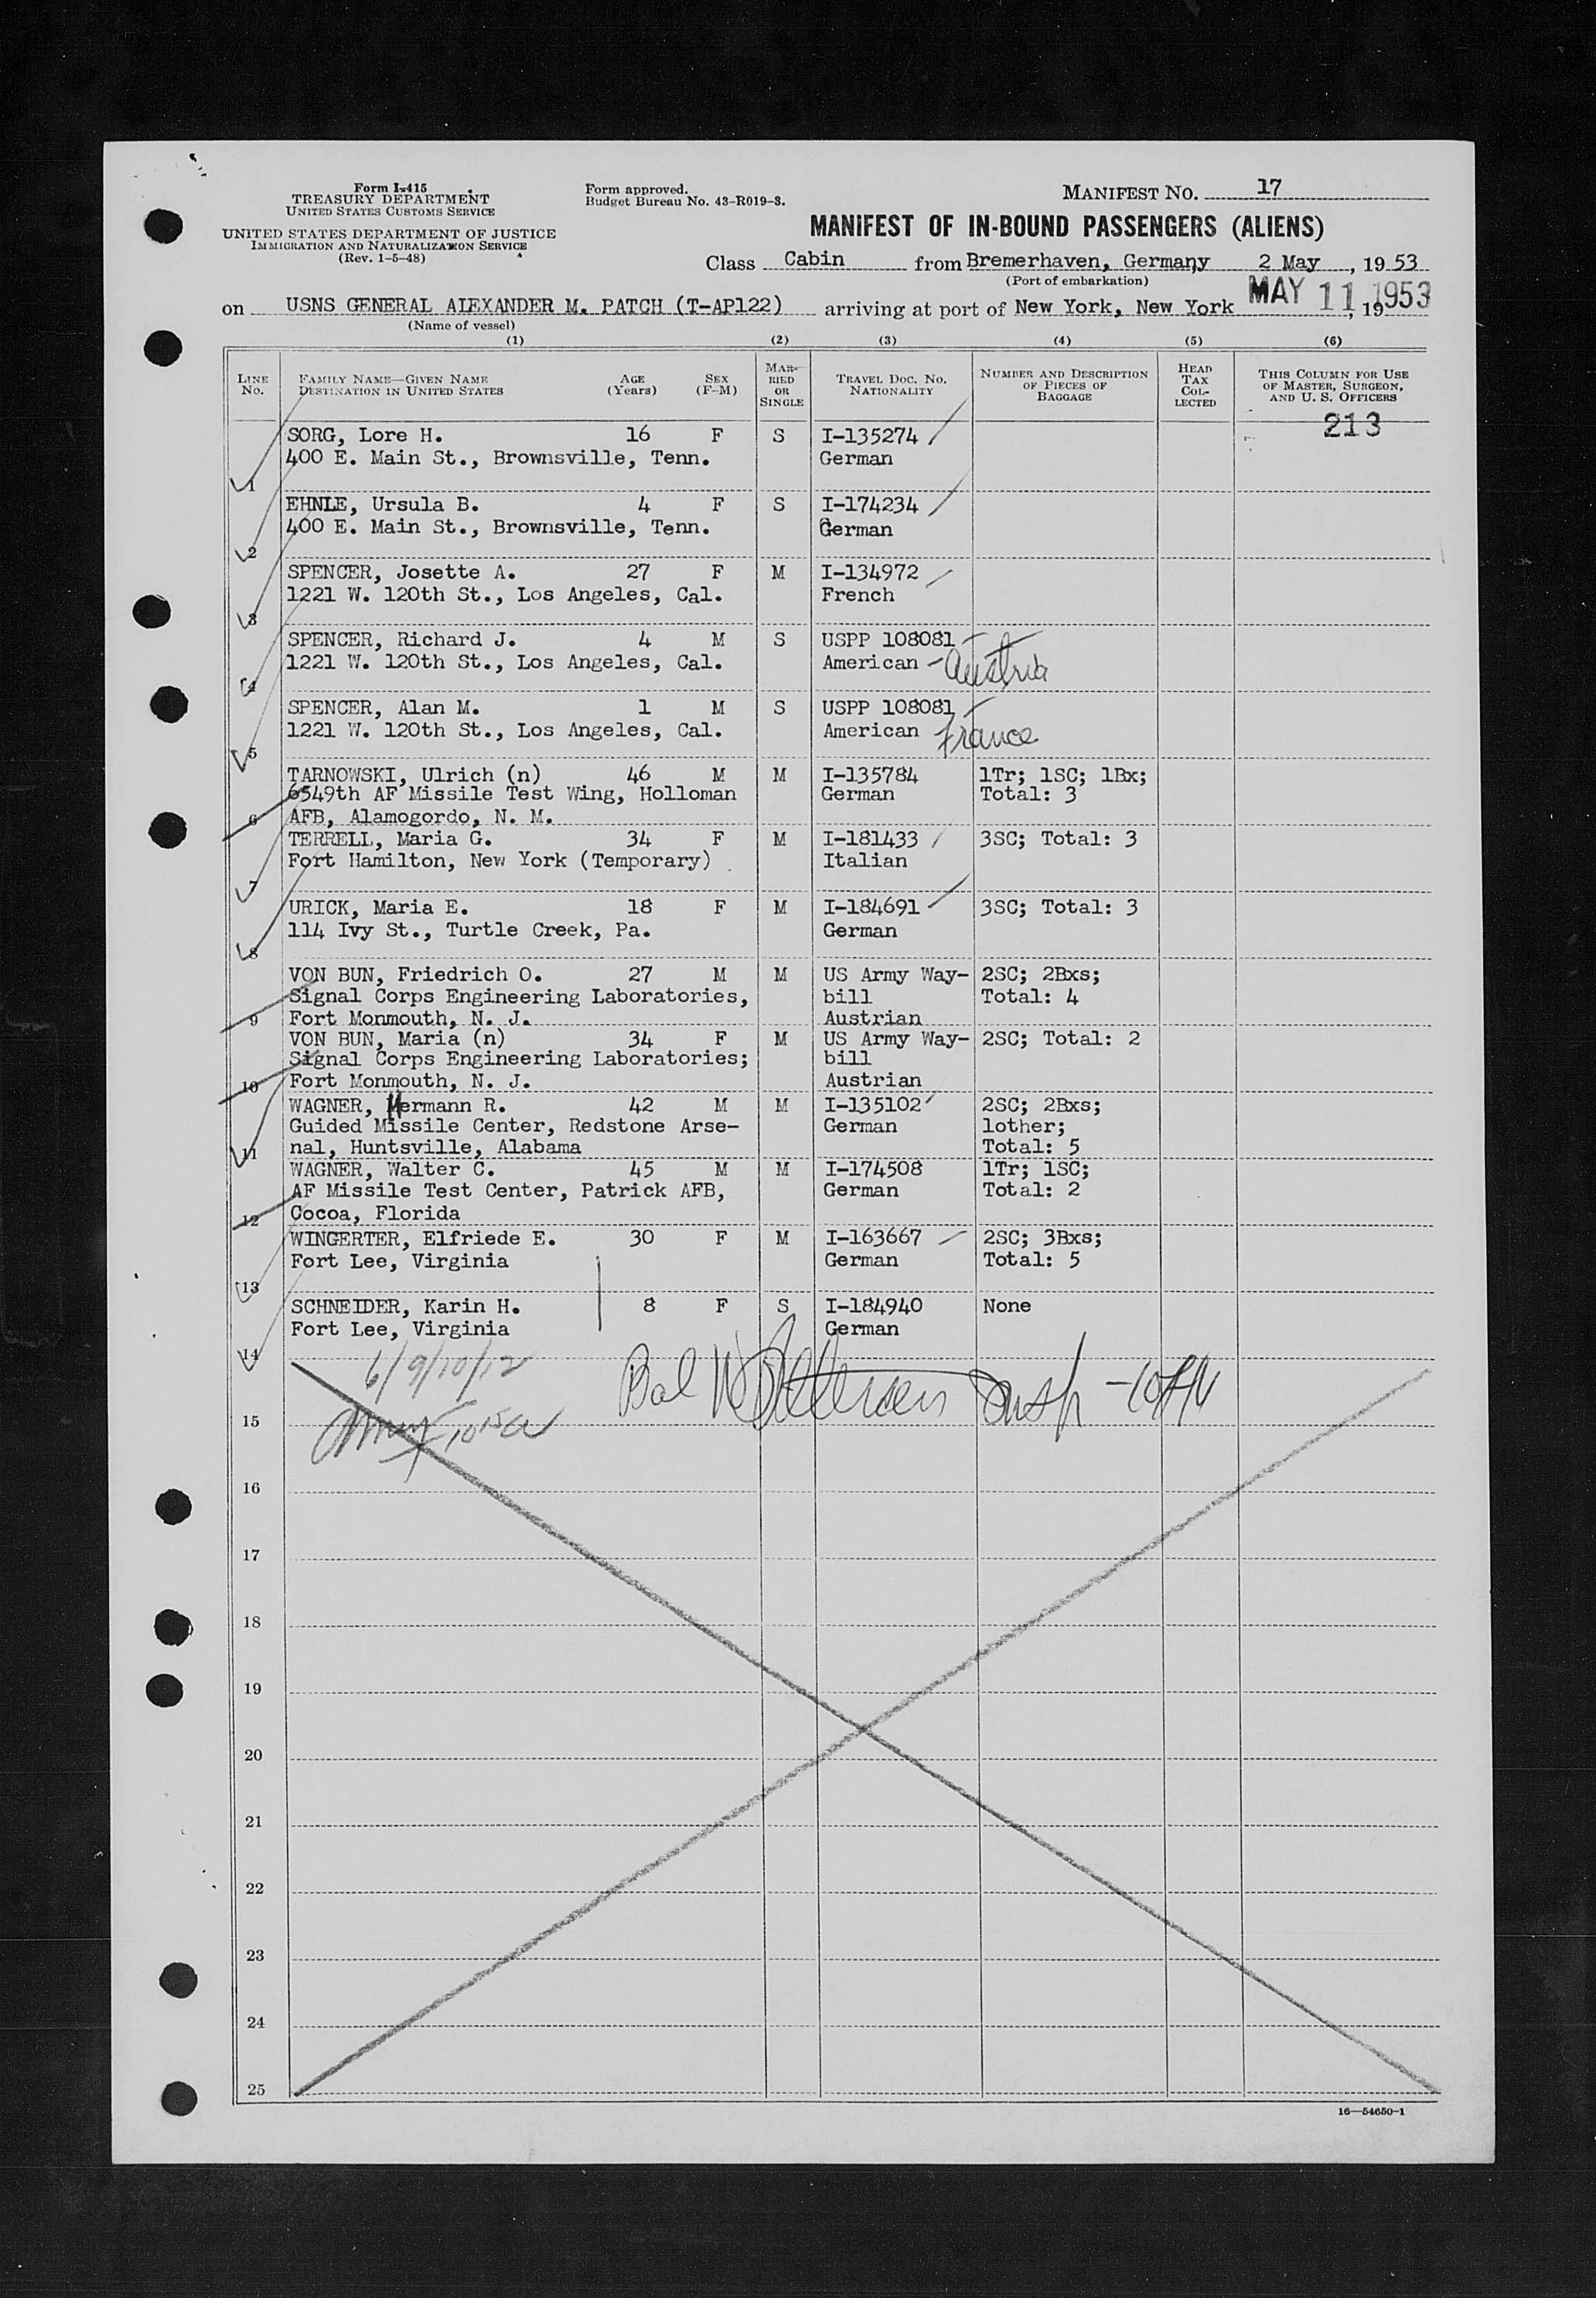 Form I-415
TREASURY DEPARTMENT
UNITED STATES CUSTOMS SERVICE
UNITED STATES DEPARTMENT OF JUSTICE
IMMIGRATION AND NATURALIZATION SERVICE
(Rev. 1-5-48)
Form approved.
Budget Bureau No. 43-R019-3.
MANIFEST NO. 17
MANIFEST OF IN-BOUND PASSENGERS (ALIENS)
Class Cabin from Bremerhaven, Germany 2 May, 1953
(Port of embarkation)
on USNS GENERAL ALEXANDER M. PATCH (T-AP122) arriving at port of New York, New York MAY 11 1953, 19
(Name of vessel)
(1) (2) (3) (4) (5) (6)
LINE NO. FAMILY NAME—GIVEN NAME DESTINATION IN UNITED STATES AGE (Years) SEX (F-M) MARRIED OR SINGLE TRAVEL DOC. NO. NATIONALITY NUMBER AND DESCRIPTION OF PIECES OF BAGGAGE HEAD TAX COLLECTED THIS COLUMN FOR USE OF MASTER, SURGEON, AND U. S. OFFICERS
213
SORG, Lore H. 16 F S I-135274
400 E. Main St., Brownsville, Tenn. German
1
EHNLE, Ursula B. 4 F S I-174234
400 E. Main St., Brownsville, Tenn. German
2
SPENCER, Josette A. 27 F M I-134972
1221 W. 120th St., Los Angeles, Cal. French
3
SPENCER, Richard J. 4 M S USPP 108081
1221 W. 120th St., Los Angeles, Cal. American - Austria
4
SPENCER, Alan M. 1 M S USPP 108081
1221 W. 120th St., Los Angeles, Cal. American France
5
TARNOWSKI, Ulrich (n) 46 M M I-135784 1Tr; 1SC; 1Bx;
6549th AF Missile Test Wing, Holloman German Total: 3
6 AFB, Alamogordo, N. M.
TERRELL, Maria G. 34 F M I-181433 3SC; Total: 3
Fort Hamilton, New York (Temporary) Italian
7
URICK, Maria E. 18 F M I-184691 3SC; Total: 3
114 Ivy St., Turtle Creek, Pa. German
8
VON BUN, Friedrich O. 27 M M US Army Way- 2SC; 2Bxs;
Signal Corps Engineering Laboratories, bill Total: 4
9 Fort Monmouth, N. J. Austrian
VON BUN, Maria (n) 34 F M US Army Way- 2SC; Total: 2
Signal Corps Engineering Laboratories; bill
10 Fort Monmouth, N. J. Austrian
WAGNER, Hermann R. 42 M M I-135102 2SC; 2Bxs;
Guided Missile Center, Redstone Arse- German 1other;
11 nal, Huntsville, Alabama Total: 5
WAGNER, Walter C. 45 M M I-174508 1Tr; 1SC;
AF Missile Test Center, Patrick AFB, German Total: 2
12 Cocoa, Florida
WINGERTER, Elfriede E. 30 F M I-163667 2SC; 3Bxs;
Fort Lee, Virginia German Total: 5
13
SCHNEIDER, Karin H. 8 F S I-184940 None
Fort Lee, Virginia German
14
6/9/10/12
15
16
17
18
19
20
21
22
23
24
25
16—54650-1